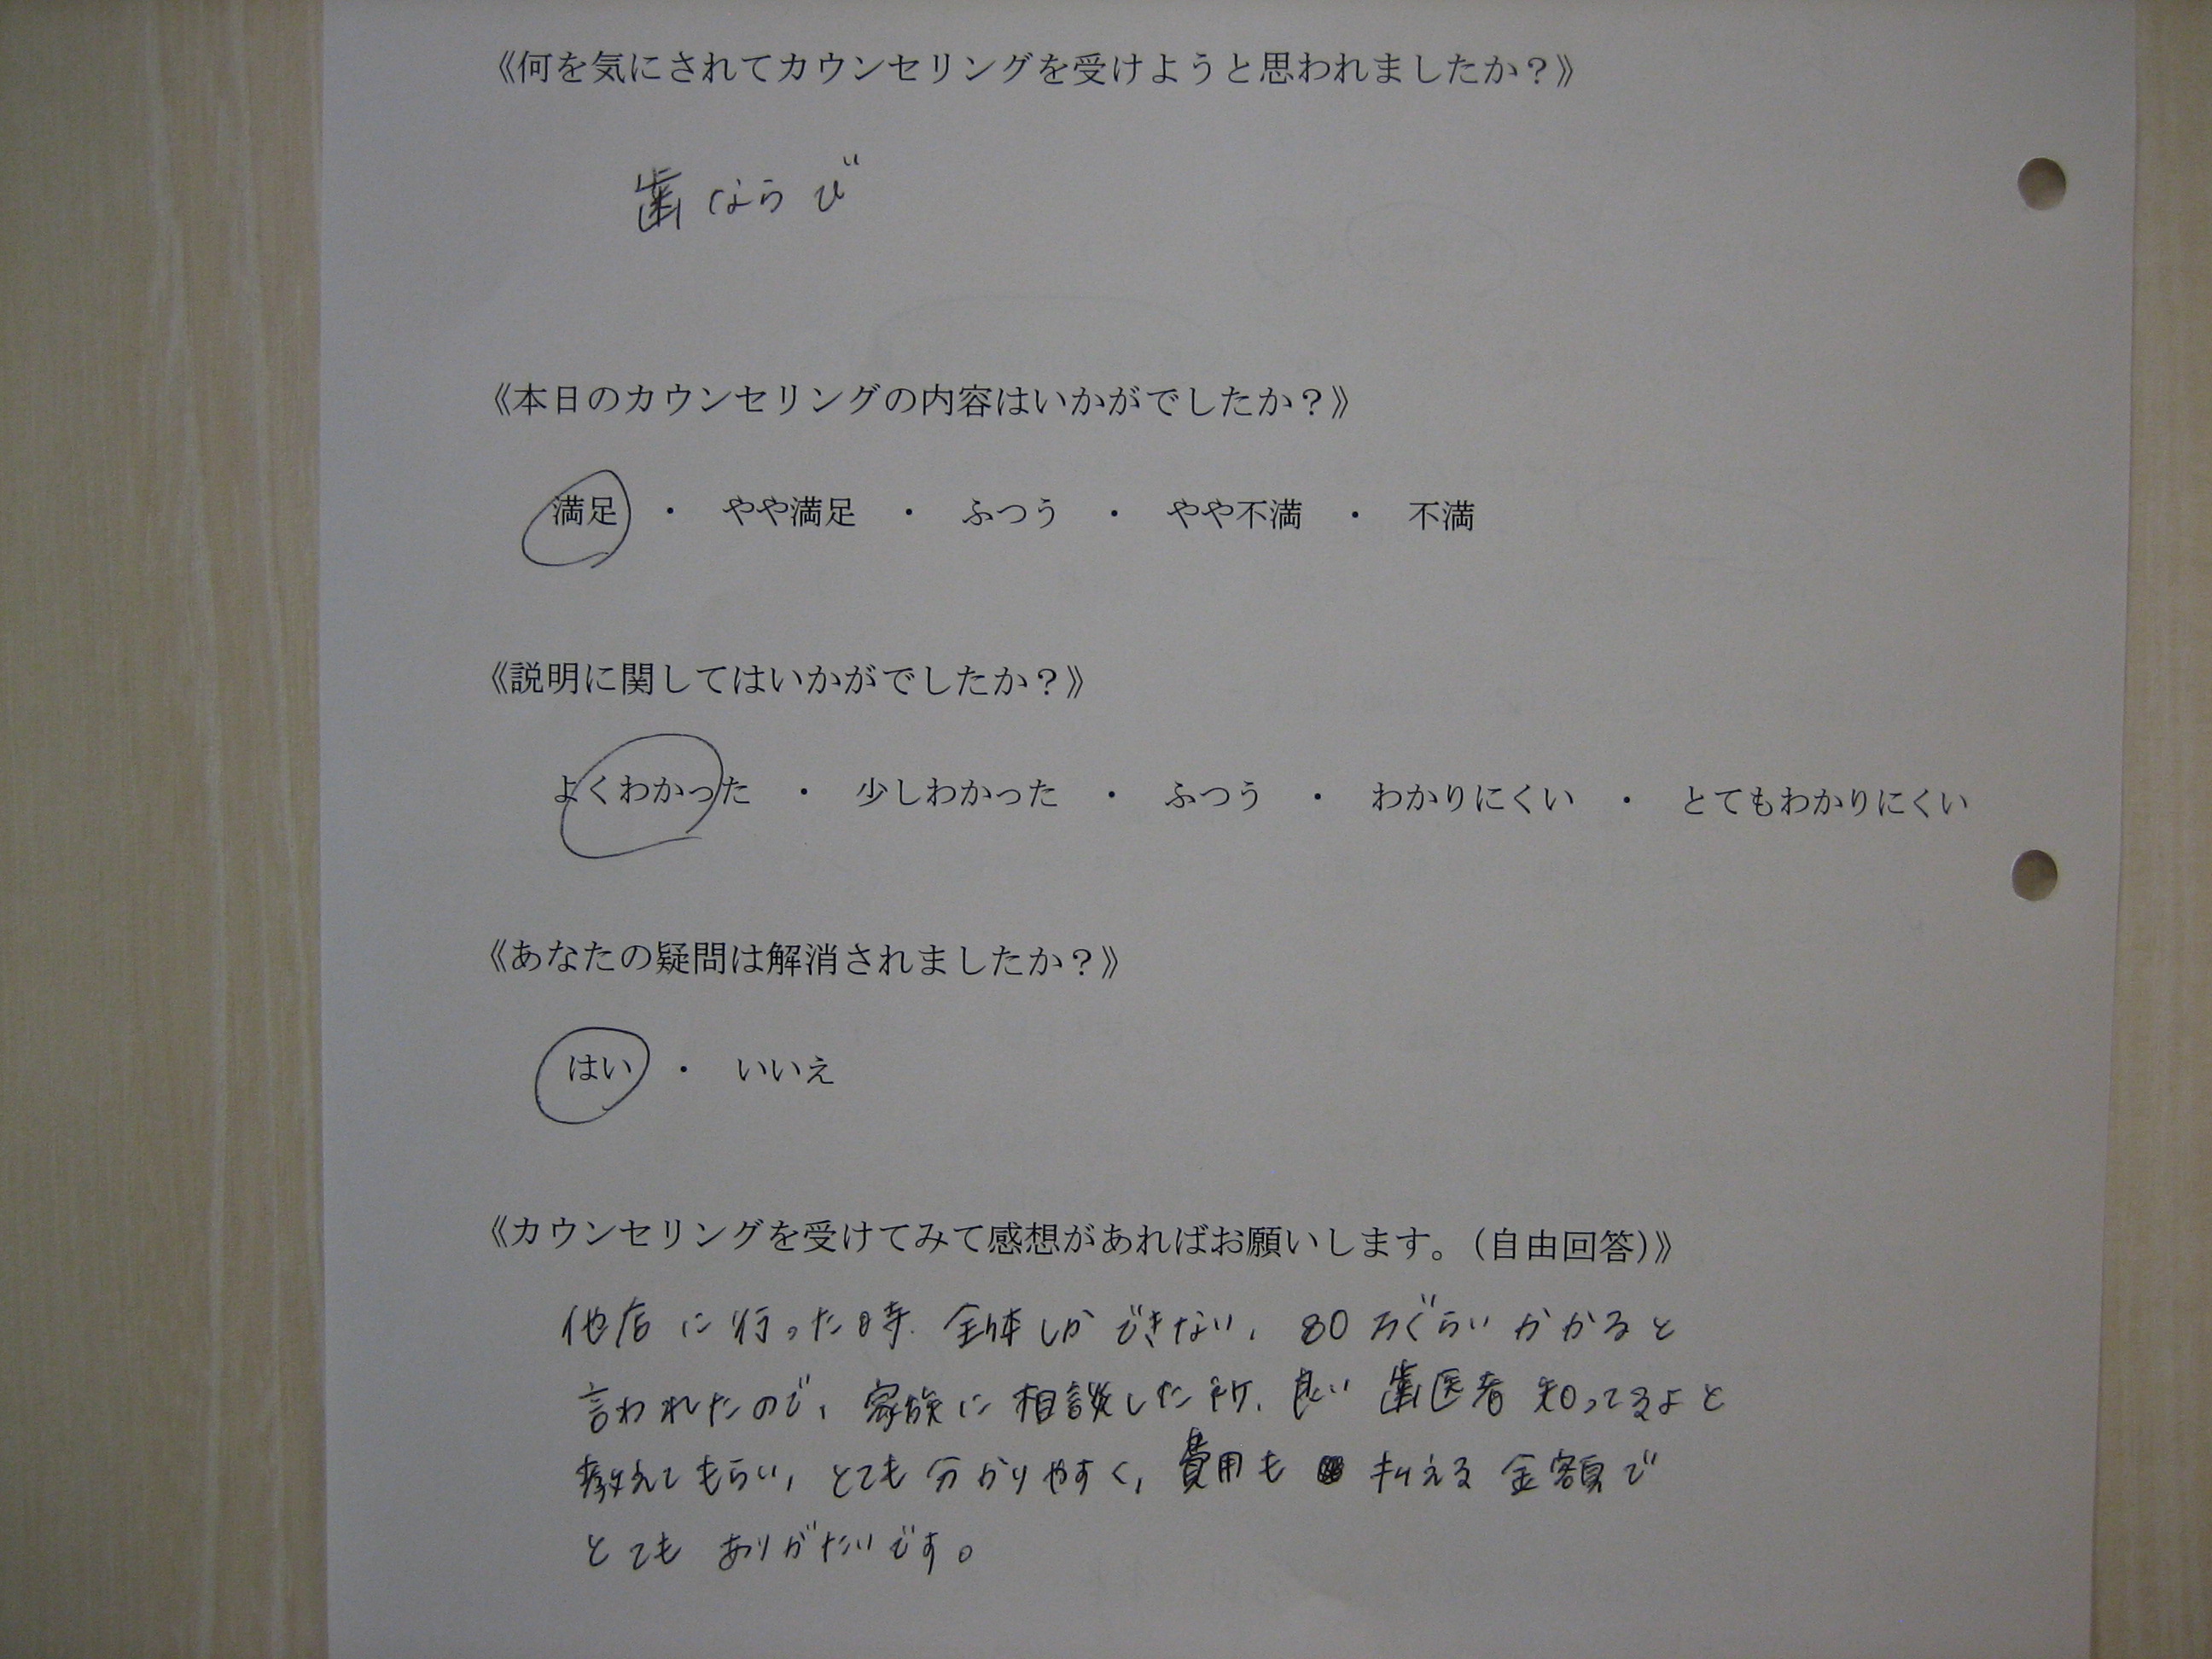 《何を気にされてカウンセリングを受けようと思われましたか？》
歯ならび
《本日のカウンセリングの内容はいかがでしたか？》
満足 ・ やや満足 ・ ふつう ・ やや不満 ・ 不満
《説明に関してはいかがでしたか？》
よくわかった ・ 少しわかった ・ ふつう ・ わかりにくい ・ とてもわかりにくい
《あなたの疑問は解消されましたか？》
はい ・ いいえ
《カウンセリングを受けてみて感想があればお願いします。（自由回答）》
他店に行った時、全体しかできない、80万ぐらいかかると
言われたので、家族に相談した所、良い歯医者知ってるよと
教えてもらい、とても分かりやすく、費用も払える金額で
とてもありがたいです。